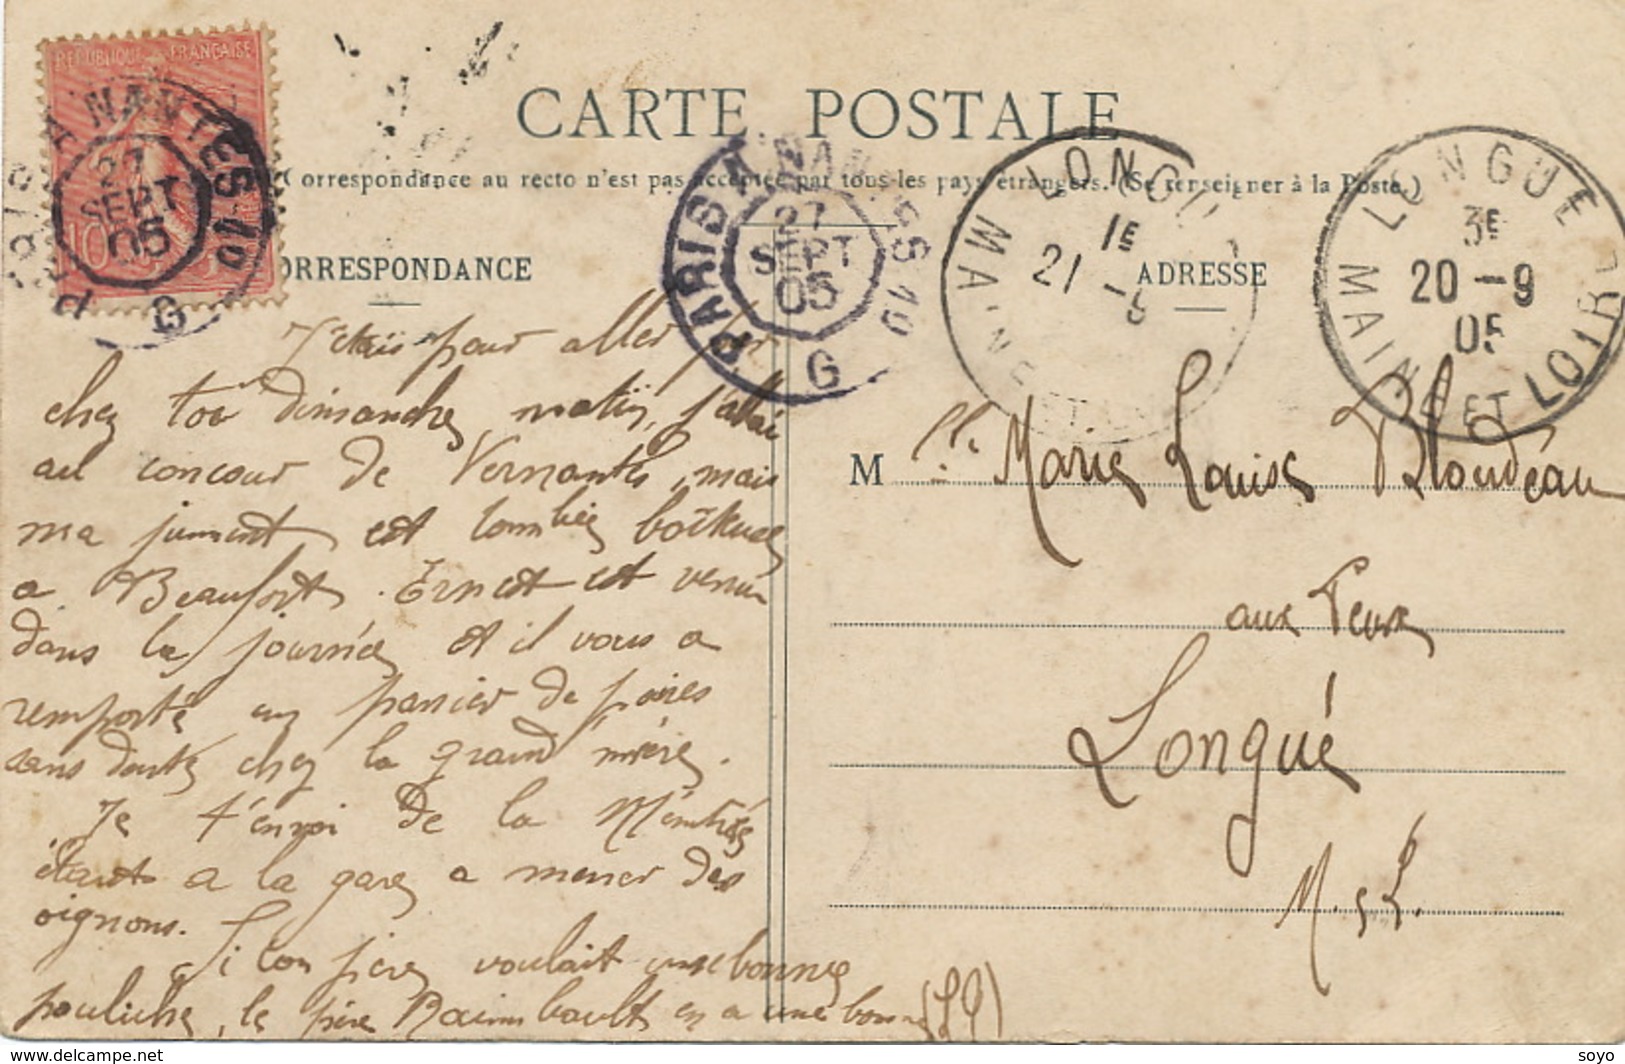 REPUBLIQUE FRANÇAISE
10
PARIS A NANTES 10
27
SEPT
05
G
CARTE POSTALE
Correspondance au recto n'est pas acceptée par tous les pays étrangers. (Se renseigner à la Poste.)
PARIS A NANTES 10
27
SEPT
05
G
LONGUÉ
1E
21 - 
MAINE ET
LONGUE
3E
20 - 9
05
MAINE ET LOIRE
CORRESPONDANCE
ADRESSE
J'étais pour aller
chez toi dimanche matin, j'allai
au concour de Vernantes, mais
ma jument est tombée boiteuse
a Beaufort. Ernest est venu
dans la journée et il vous a
remporté un panier de poires
sans doute chez la grand mère.
Je t'envoi de la Ménitré
étant a la gare a mener des
oignons.
Si ton père voulait une bonne
pouliche, le père Raimbault en a une bonne
M lle Marie Louise Blondeau
aux
Longué
M. et L.
www.delcampe.net
soyo